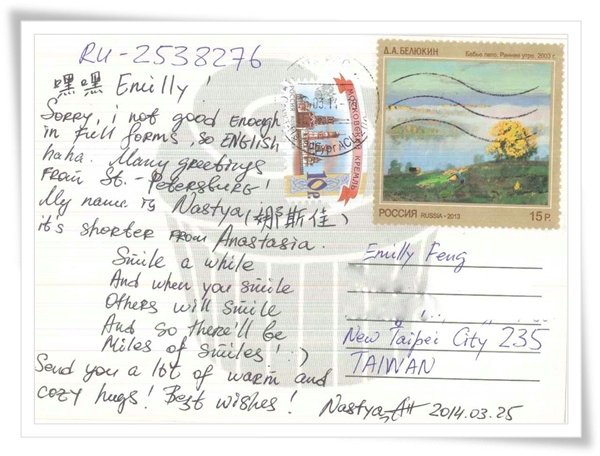 RU-2538276
嘿嘿 Emilly!
Sorry, i not good enough
in full forms, so ENGLISH
haha. Many greetings
FROM St.-Petersburg!
My name is Nastya (娜斯佳)
it's shorter FROM Anastasia.
Smile a while
And when you smile
Others will smile
And so there'll be
Miles of smiles! :)
Send you a lot of warm and
cozy hugs! Best wishes!
Nastya 2014.03.25
РОССИЯ
10р
МОСКОВСКИЙ КРЕМЛЬ
Д.А. БЕЛЮКИН
Бабье лето. Раннее утро. 2003 г.
РОССИЯ RUSSIA·2013
15 Р.
Emilly Feng
New Taipei City 235
TAIWAN